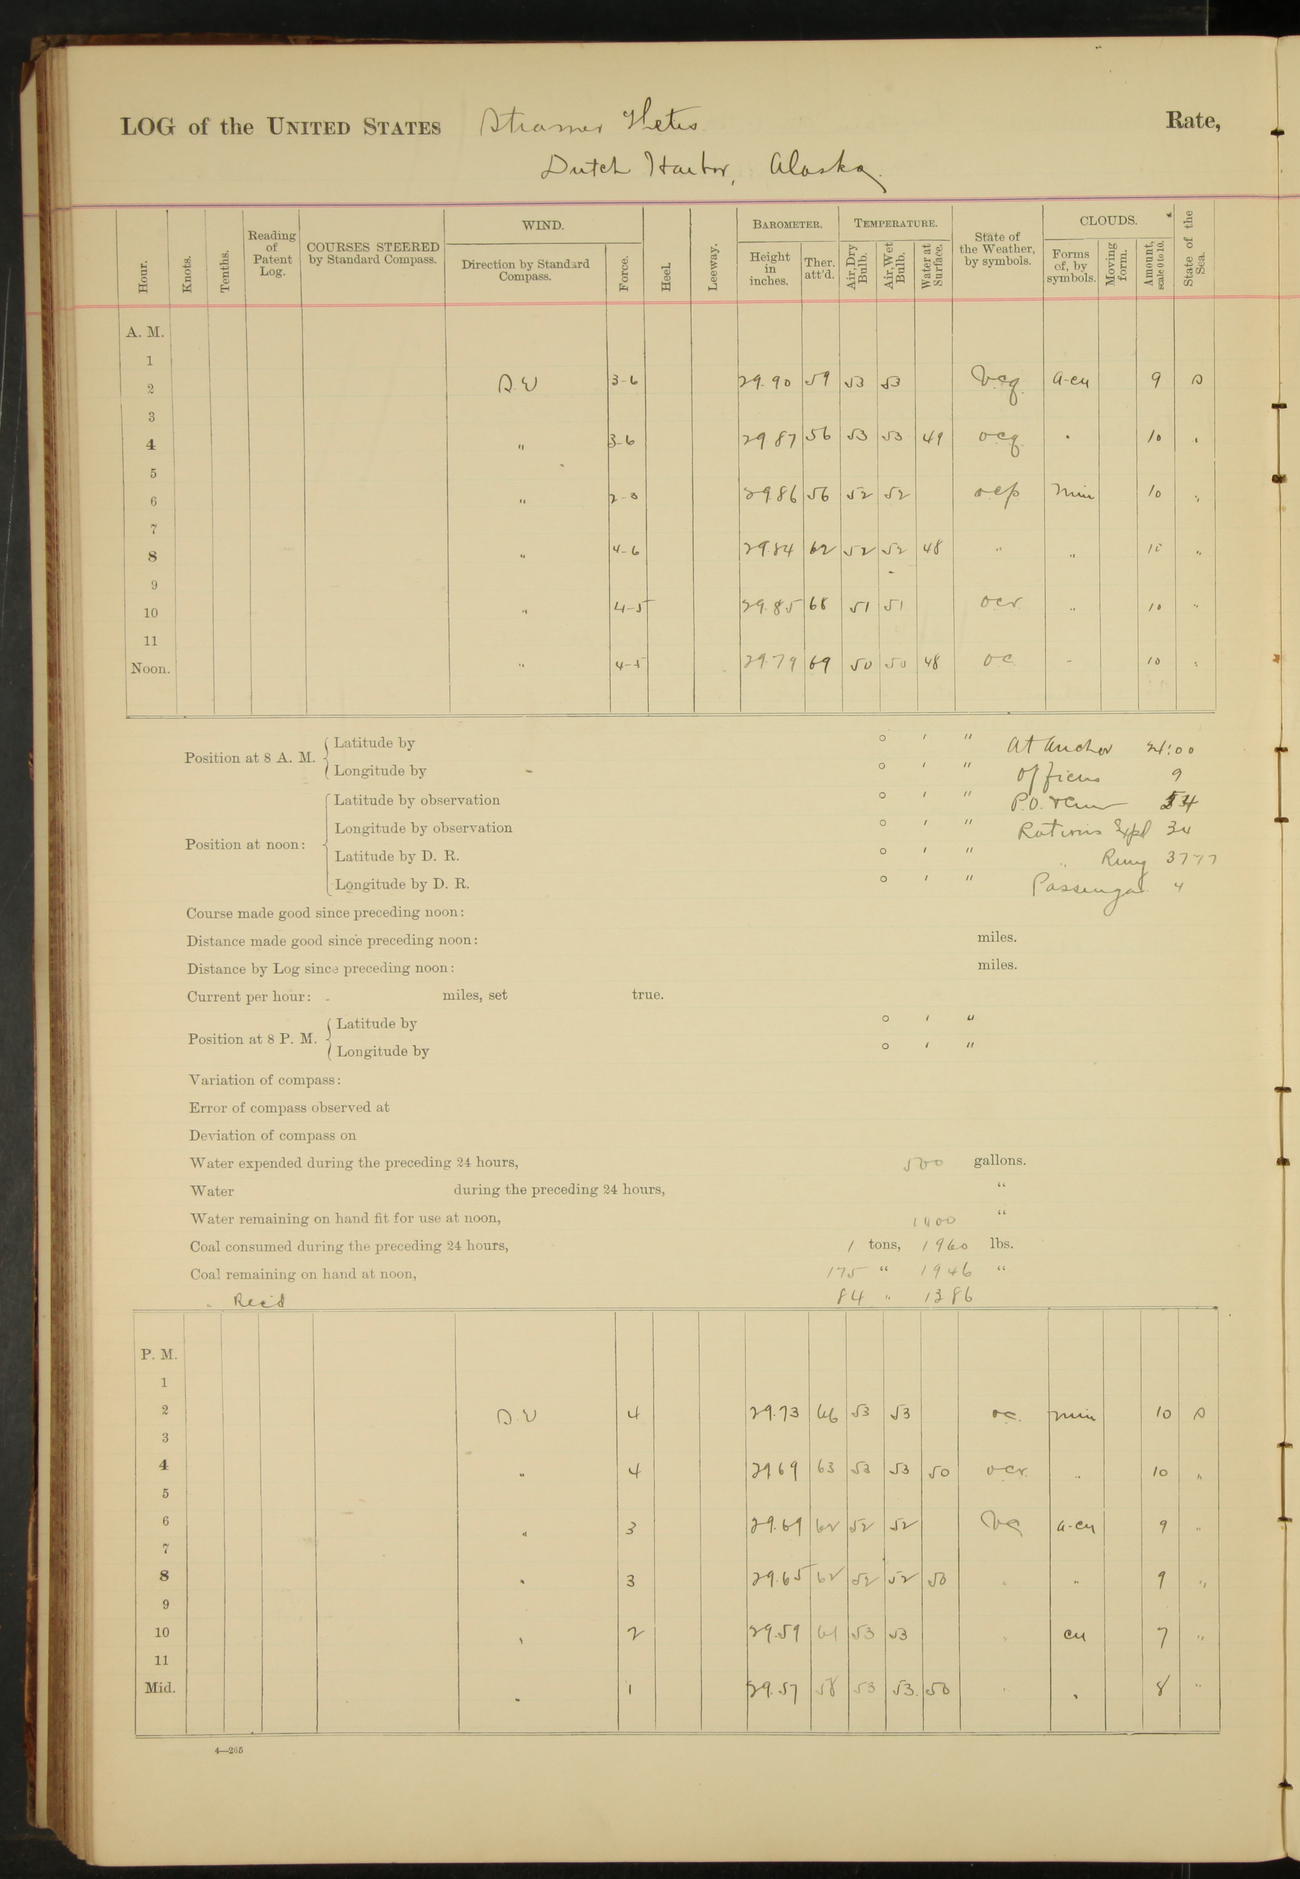 LOG of the UNITED STATES Steamer Thetis Rate,
Dutch Harbor, Alaska.
Hour. Knots. Tenths. Reading of Patent Log. COURSES STEERED by Standard Compass. WIND. Direction by Standard Compass. Force. Heel. Leeway. BAROMETER. Height in inches. Ther. att'd. TEMPERATURE. Air, Dry Bulb. Air, Wet Bulb. Water at Surface. State of the Weather, by symbols. CLOUDS. Forms of, by symbols. Moving form. Amount, scale 0 to 10. State of the Sea.
A. M.
1
2 S.W 3-6 29.90 59 53 53 bcq a-cu 9 S
3
4 " 3-6 29 87 56 53 53 49 ocq " 10 "
5
6 " 29.86 56 52 52 ocp nim 10 "
7
8 " 4-6 29.84 62 52 52 48 " " 10 "
9
10 " 4-5 29.85 68 51 51 ocr " 10 "
11
Noon. " 4-5 29.79 69 50 50 48 oc " 10 "
Position at 8 A. M. Latitude by ° ′ ″ At anchor 24:00
Longitude by ° ′ ″ Officers 9
Position at noon: Latitude by observation ° ′ ″ P.O. & Crew 54
Longitude by observation ° ′ ″ Rations Expd
Latitude by D. R. ° ′ ″ " Rmng 3777
Longitude by D. R. ° ′ ″ Passengers 4
Course made good since preceding noon:
Distance made good since preceding noon: miles.
Distance by Log since preceding noon: miles.
Current per hour: miles, set true.
Position at 8 P. M. Latitude by ° ′ ″
Longitude by ° ′ ″
Variation of compass:
Error of compass observed at
Deviation of compass on
Water expended during the preceding 24 hours, 500 gallons.
Water during the preceding 24 hours, "
Water remaining on hand fit for use at noon, "
Coal consumed during the preceding 24 hours, 1 tons, 1960 lbs.
Coal remaining on hand at noon, 175 " 1946 "
" Rec'd 84 " 1386
P. M.
1
2 S.W 4 29.73 66 53 53 oc. nim 10 S
3
4 " 4 29 69 63 53 53 50 ocr " 10 "
5
6 " 3 29.69 62 52 52 bc a-cu 9 "
7
8 " 3 29.65 62 52 52 50 " " 9 "
9
10 " 2 29.59 61 53 53 " cu 7 "
11
Mid. " 1 29.57 58 53 53 50 " " 8 "
4—265